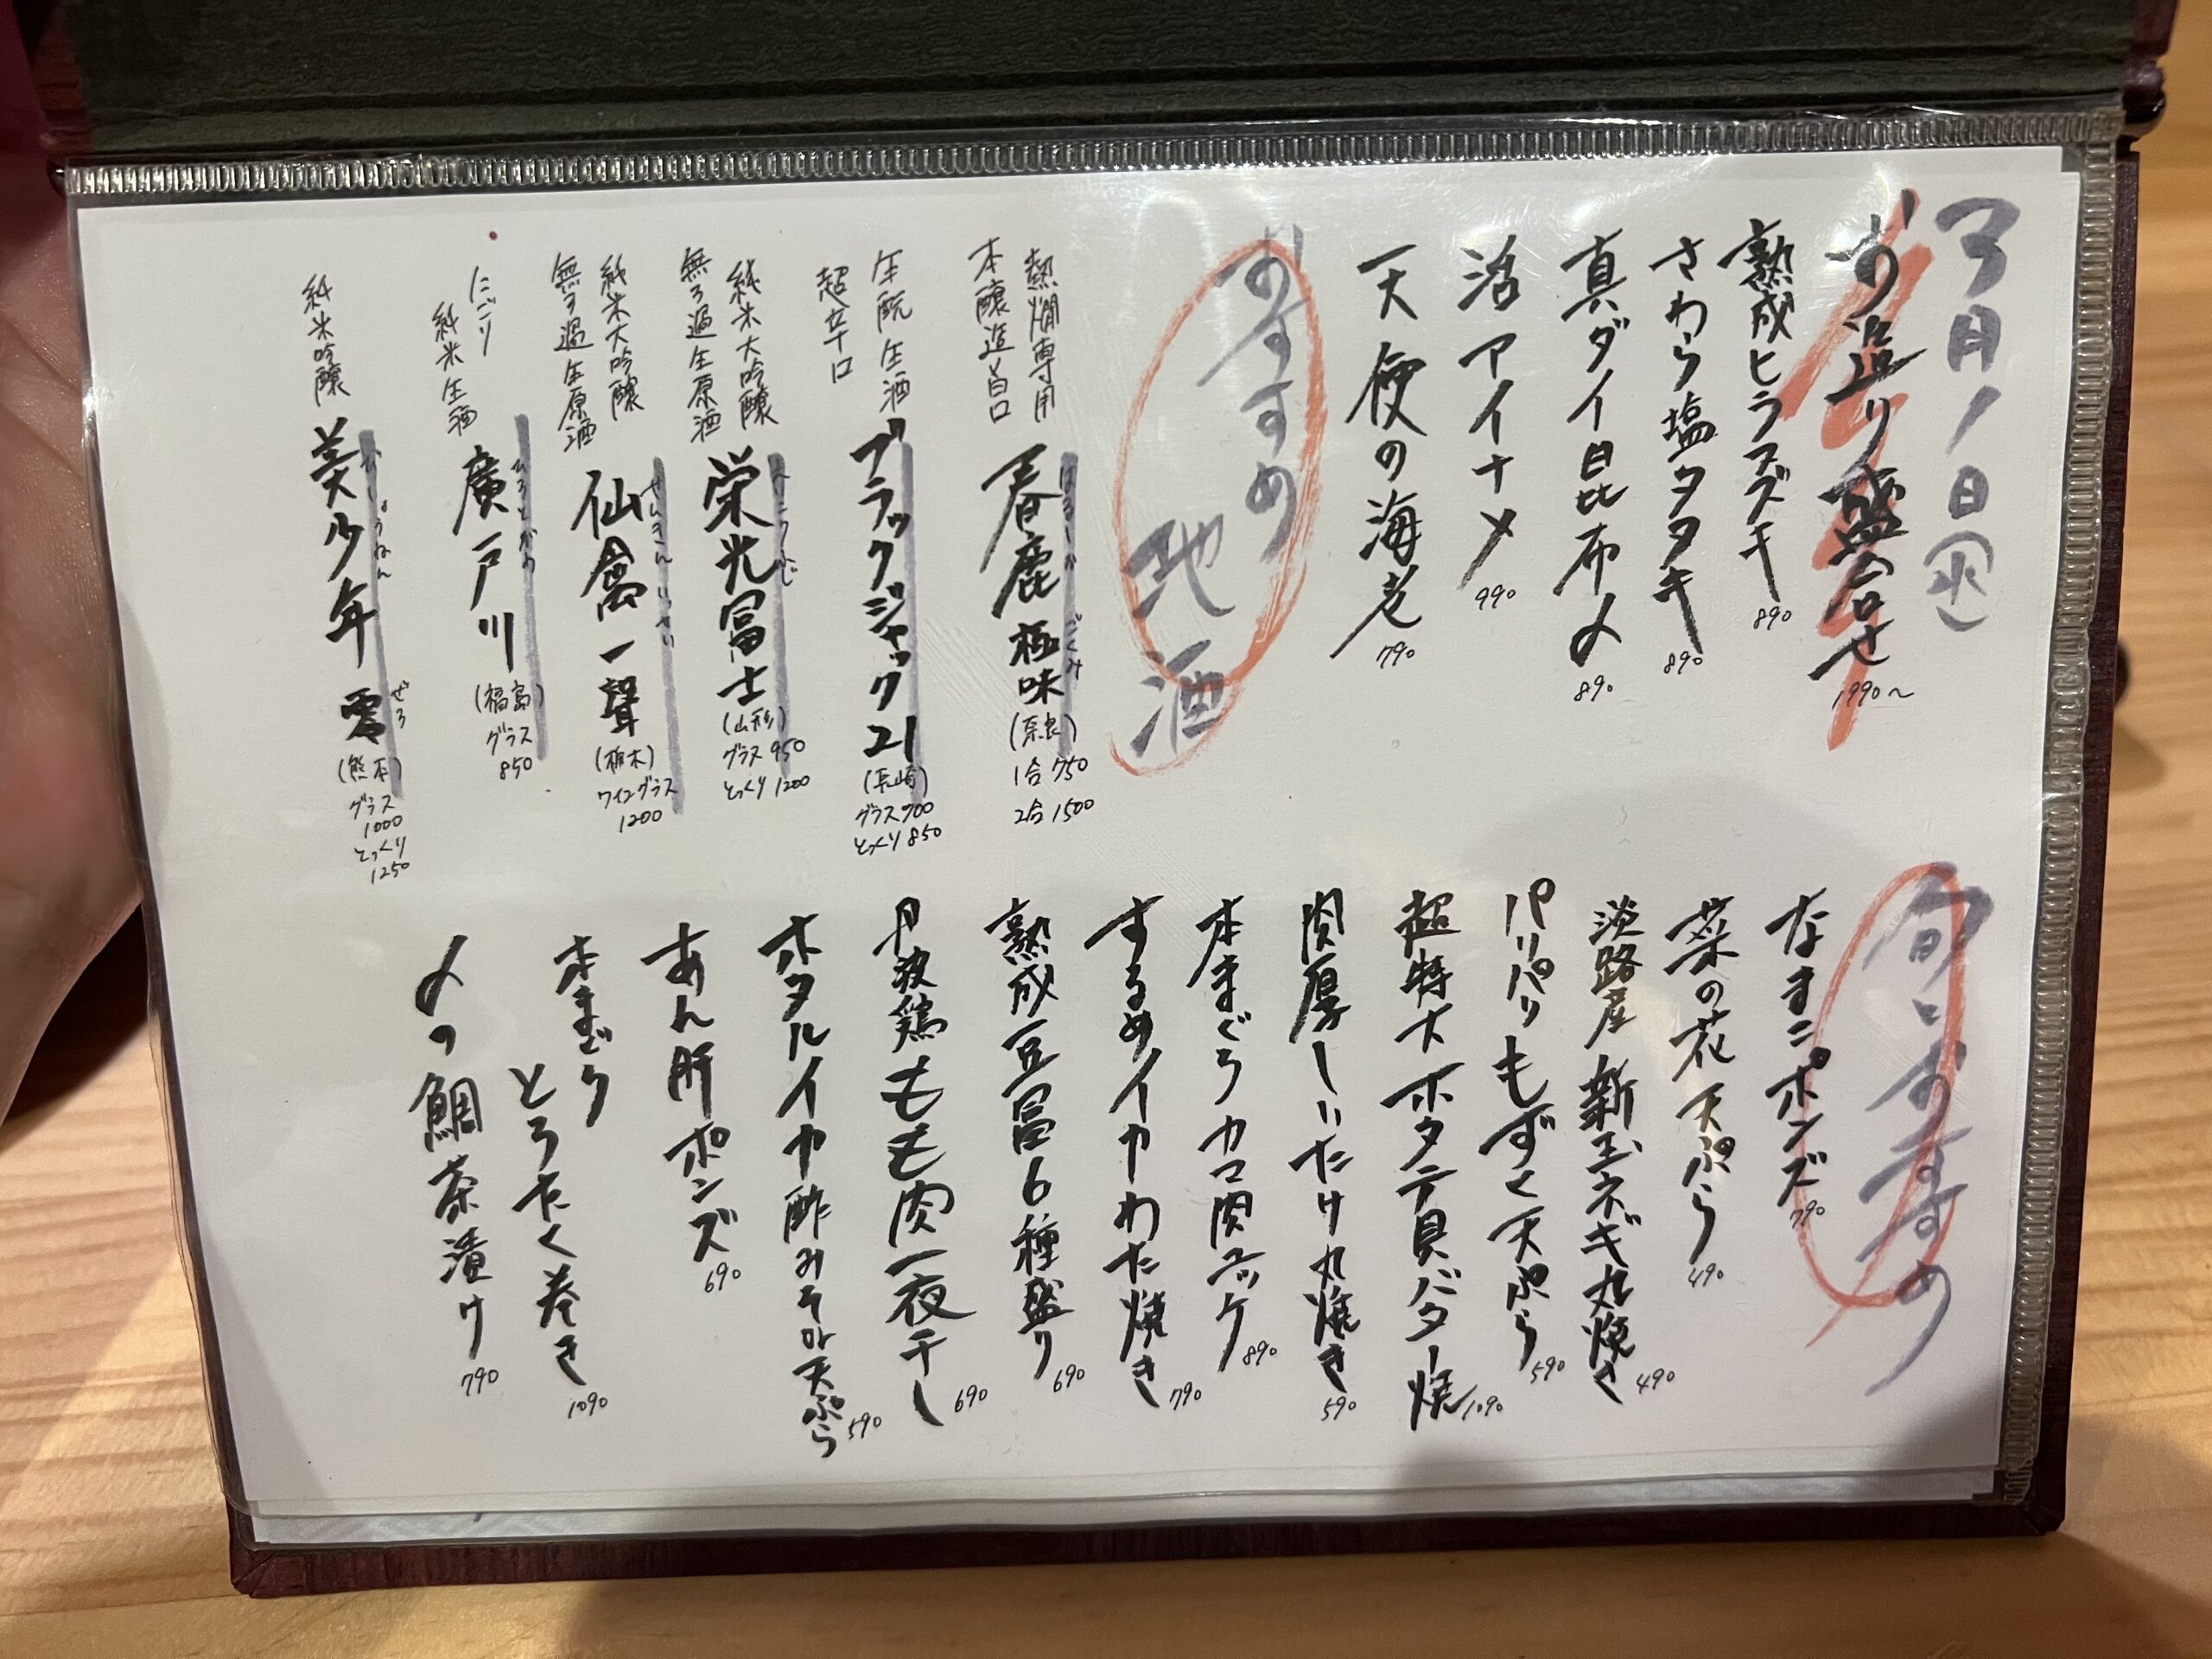 3月1日(火)
お造り盛合せ 1990〜
熟成ヒラスズキ 890
さわら塩タタキ 890
真ダイ昆布〆 890
活アイナメ 990
天使の海老 790
おすすめ
地酒
熱燗専用
本醸造旨口
春鹿 極味 (奈良) 1合750 2合1500
はるしか ごくみ
生酛生酒
超辛口
ブラックジャック21 (長崎) グラス700 とっくり850
純米大吟醸
無ろ過生原酒
栄光冨士 (山形) グラス950 とっくり1200
えいこうふじ
純米大吟醸
無ろ過生原酒
仙禽 一聲 (栃木) ワイングラス1200
せんきん いっせい
にごり
純米生酒
廣戸川 (福島) グラス850
ひろとがわ
純米吟醸
美少年 零 (熊本) グラス1000 とっくり1250
びしょうねん ぜろ
旬のおすすめ
なまこポンズ 790
菜の花天ぷら 490
淡路産新玉ネギ丸焼き 490
パリパリもずく天ぷら 590
超特大ホタテ貝バター焼 1090
肉厚しいたけ丸焼き 590
本まぐろカマ肉ユッケ 890
するめイカわた焼き 790
熟成豆冨6種盛り 690
丹波鶏もも肉一夜干し 690
ホタルイカ酢みそor天ぷら 590
あん肝ポンズ 690
本まぐろ
とろたく巻き 1090
〆の鯛茶漬け 790